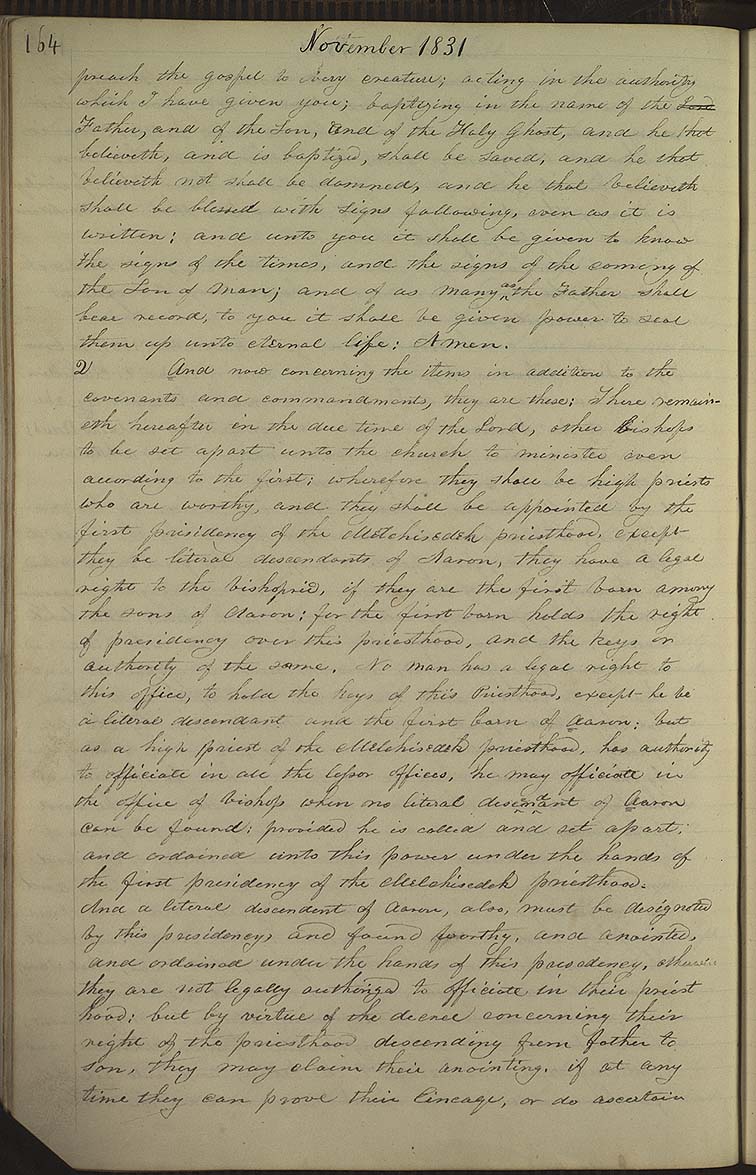 164
November 1831
preach the gospel to every creature; acting in the authority
which I have given you; baptizing in the name of the Lord
Father, and of the Son, and of the Holy Ghost, and he that
believeth, and is baptized, shall be saved, and he that
believeth not shall be damned, and he that believeth
shall be blessed with signs following, even as it is
written; and unto you it shall be given to know
the signs of the times, and the signs of the coming of
the Son of Man; and of as many as the Father shall
bear record, to you it shall be given power to seal
them up unto eternal life: Amen.
2 And now concerning the items in addition to the
covenants and commandments, they are these; There remain-
eth hereafter in the due time of the Lord, other bishops
to be set apart unto the church to minister even
according to the first; wherefore they shall be high priests
who are worthy, and they shall be appointed by the
first presidency of the Melchisedek priesthood, except
they be literal descendants of Aaron, they have a legal
right to the bishopric, if they are the first born among
the sons of Aaron; for the first born holds the right
of presidency over this priesthood, and the keys or
authority of the same. No man has a legal right to
this office, to hold the keys of this Priesthood, except he be
a literal descendant and the first born of Aaron: but
as a high priest of the Melchisedek priesthood, has authority
to officiate in all the lesser offices, he may officiate in
the office of bishop when no literal descendant of Aaron
can be found; provided he is called and set apart,
and ordained unto this power under the hands of
the first presidency of the Melchisedek priesthood.
And a literal descendent of Aaron, also, must be designated
by this presidency, and found worthy, and anointed,
and ordained under the hands of this presedency, otherwise
they are not legally authorized to officiate in their priest
hood; but by virtue of the decree concerning their
right of the priesthood descending from father to
son, they may claim their anointing, if at any
time they can prove their lineage, or do ascertain